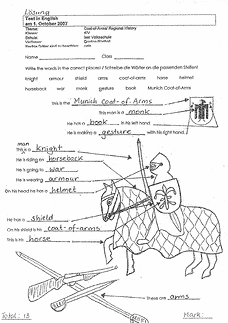 Lösung
Test in English
am 1. Oktober 2007
Thema: Coat-of-Arms/ Regional History
Klasse: 4IV
Schule:
Name Class
Write the words in the correct places! / Schreibe die Wörter an die passenden Stellen!
knight armour shield arms coat-of-arms horse helmet
horseback war monk gesture book Munich Coat-of-Arms
This is the Munich Coat-of-Arms
This man is a monk.
He has a book in his left hand.
He's making a gesture with his right hand.
man
This is a knight.
He's riding on horseback
He's going to war
He's wearing armour
On his head he has a helmet
He has a shield
On his shield is his coat-of-arms
This is his horse
These are arms
Total: 13 Mark: